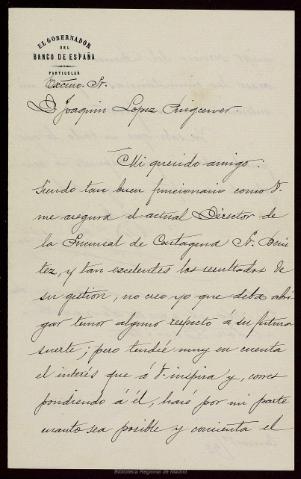 EL GOBERNADOR
DEL
BANCO DE ESPAÑA
PARTICULAR
Excmo. Sr.
D. Joaquín López Puigcerver
Mi querido amigo:
Siendo tan buen funcionario como V.
me asegura el actual Director de
la Sucursal de Cartagena Sr. Beni
tez, y tan excelentes los resultados de
su gestion, no creo yo que deba abri
gar temor alguno respecto á su futura
suerte; pero tendré muy en cuenta
el interés que á V. inspira y, corres
pondiendo á él, haré por mi parte
cuanto sea posible y consienta el
Biblioteca Regional de Madrid